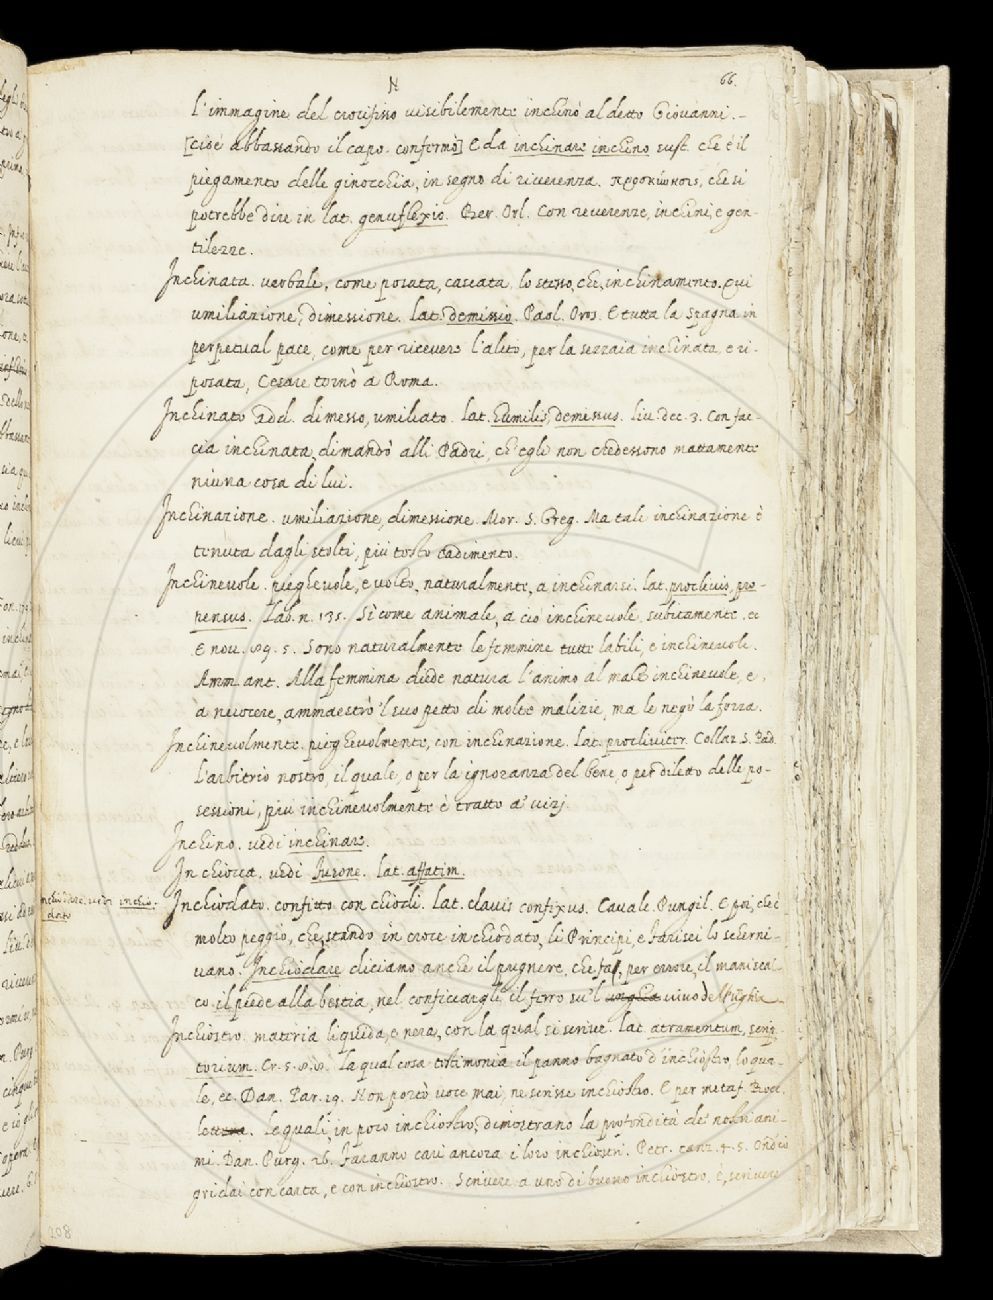 N
66.
L'immagine del crocifisso visibilemente inchinò al detto Giovanni.
[cioè abbassando il capo confermò] E da inchinare inchino sust. che è il
piegamento delle ginocchia, in segno di riverenza. προσκύνησις, che si
potrebbe dire in lat. genuflexio. Ber. Orl. Con reverenze, inchini, e gen-
tilezze.
Inchinata. verbale, come posata, cascata. lo stesso, che, inchinamento. Qui
umiliazione, dimessione. lat. demissio. Paol. Oros. E tutta la Spagna in
perpetual pace, come per ricevere l'aleto, per la sezzaia inchinata, e ri-
posata, Cesare tornò a Roma.
Inchinato Add. dimesso, umiliato. lat. humilis, demissus. Liv. dec. 3. Con fac-
cia inchinata, dimandò alli Padri, ch'egli non credessono mattamente
niuna cosa di lui.
Inchinazione. umiliazione, dimessione. Mor. S. Greg. Ma tale inchinazione è
tenuta dagli stolti, più tosto cadimento.
Inchinevole. pieghevole, e volto, naturalmente, a inchinarsi. lat. proclivis, pro-
pensus. Lab. n. 135. Sì come animale, a ciò inchinevole subitamente. ec
E nov. 89. 5. Sono naturalmente le femmine tutte labili, e inchinevoli.
Amm. ant. Alla femmina diede natura l'animo al male inchinevole, e,
a nuocere, ammaestrò 'l suo petto di molte malizie, ma le negò la forza.
Inchinevolmente. pieghevolmente, con inchinazione. lat. procliviter. Collaz. S. Pad.
L'arbitrio nostro, il quale, o per la ignoranza del bene, o per diletto delle po-
sessioni, più inchinevolmente è tratto a' vizj.
Inchino. vedi inchinare.
In chiocca. vedi Iurone. lat. affatim.
Inchiodare. vedi inchio-
dato
Inchiodato. confitto con chiodi. Lat. clavis confixus. Cavalc. Pungil. E poi, che è
molto peggio, che, stando in croce inchiodato, li Principi, e Farisei lo scherni-
vano. Inchiodare diciamo anche il pugnere, che fa, per errore, il maniscal
co il piede alla bestia, nel conficcargli il ferro su 'l unghia vivo dell'ughia
Inchiostro. materia liquida, e nera, con la qual si scrive. lat. atramentum, scrip
torium. Cr. 5. 8. 8. la qual cosa testimonia il panno bagnato d'inchiostro, lo qua-
le, ec. Dan. Par. 19. Non portò voce mai, ne scrisse inchiostro. E per metaf. Bocc.
lettera. le quali, in poco inchiostro, dimostrano la profondità de' nostri ani-
mi. Dan. Purg. 26. Faranno cari ancora i loro inchiostri. Petr. canz. 4. 5. Ond'io
gridai con carta, e con inchiostro. Scrivere a uno di buono inchiostro, è, scrivere
208